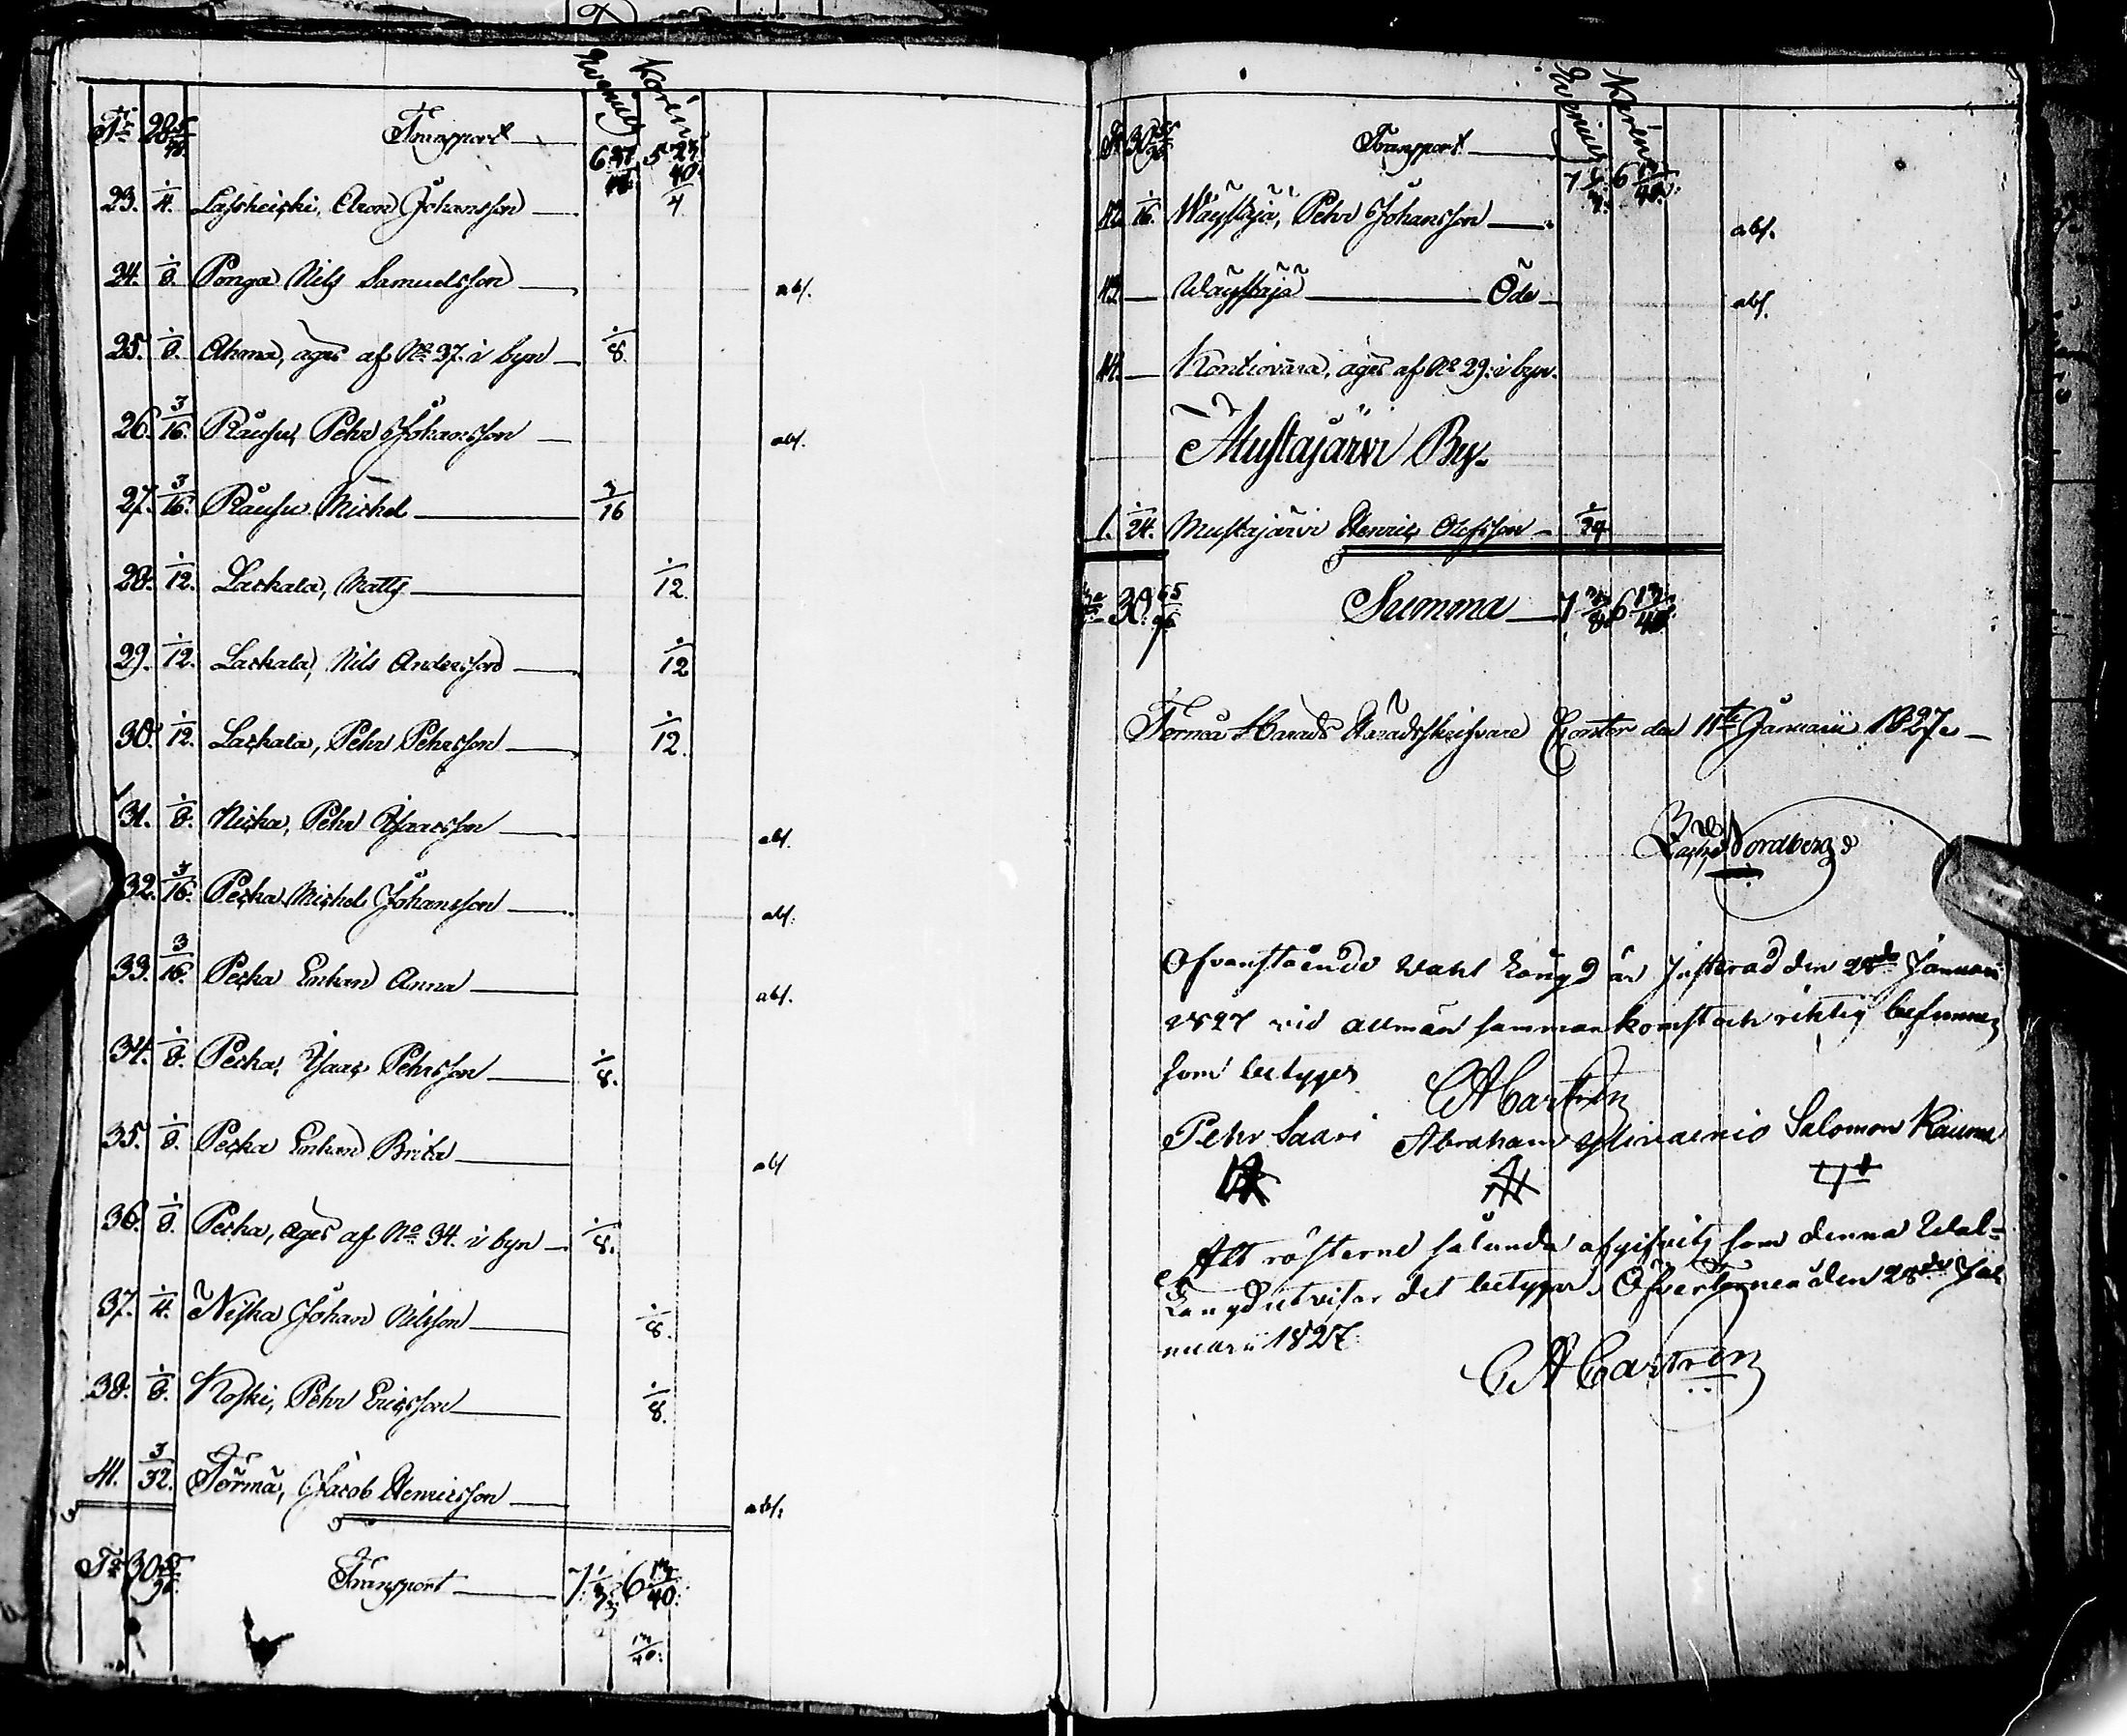 Norén
Tr 28 5/48. Transport 6 5 23/40
23. 1/4. Lassheiki, Aron Johansson 1/4
24. 1/8. Ponga Nils Samuelsson abs.
25. 1/8. äges af No 37. i byn 1/8.
26. 3/16. Rausu, Pehr Johansson abs.
27. 3/16. Rausu Michel 3/16
28. 1/12. Laskala, Matts 1/12.
29. 1/12. Laskala, Nils Andersson 1/12
30. 1/12. Laskala, Pehr Pehrsson 1/12.
31. 1/8. Niska, Pehr Isaacsson abs.
32. 3/16. Pecka Michel Johansson abs.
33. 3/16. Pecka Enkan Anna abs.
34. 1/8. Pecka, Isaac Pehrsson 1/8.
35. 1/8. Pecka Enkan Brita abs
36. 1/8. Pecka, äges af No 34. i byn 1/8.
37. 1/4. Niska Johan Nilsson 1/8.
38. 1/8. Koski, Pehr Ericsson 1/8.
41. 3/32. Törmä, Jacob Henricsson abs.
Tr 30 Transport 7 6 13/40.
13/40.
Norén
Tr 30 Transport 7 6
42. 1/16. Wäystäjä, Pehr Johansson abs.
43. Wäystäjä Öde abs.
44. Kontiovara, äges af No 29. i byn.
Mustajärvi By.
1. 1/24. Mustajärvi Henric Olofsson 1/24
30. 65/96 Summa 7 6
Torneå Härads Häradsskrifvare Contor den 11te Januarii 1827.
Nordberg
Ofvanstående Wahl Längd är Justerad den 28de Januari
1827 vid allmän sammankomst och riktig befunnen
som betyges CA Castrén
Pehr Saari Abraham Ylinäenio Salomon Rauma
Att rösterne sålunda afgifvits som denna Wal-
Längd utvisar det betygar. Öfvertorneå den 28de Ja-
nuarii 1827.
CA Castrén